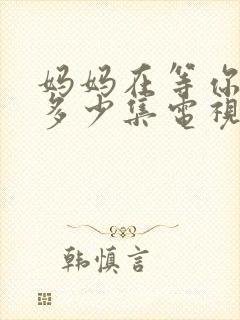 妈妈在等你
多少集電視
韩慎言